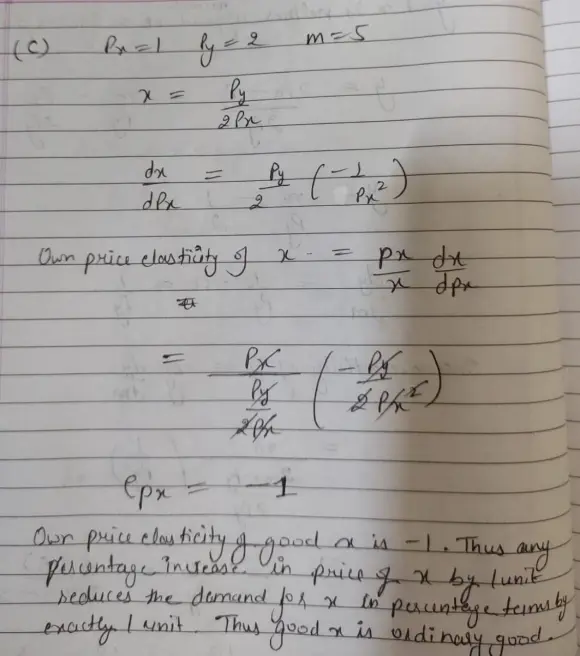 (C) Px=1 Py=2 m=5
x = Py/2Px
dx/dPx = Py/2 (-1/Px²)
Own price elasticity of x = px/x dx/dpx
= Px/(Py/2Px) (-Py/2Px²)
epx = -1
Own price elasticity of good x is -1. Thus any
percentage increase in price of x by 1 unit
reduces the demand for x in percentage terms by
exactly 1 unit. Thus good x is ordinary good.